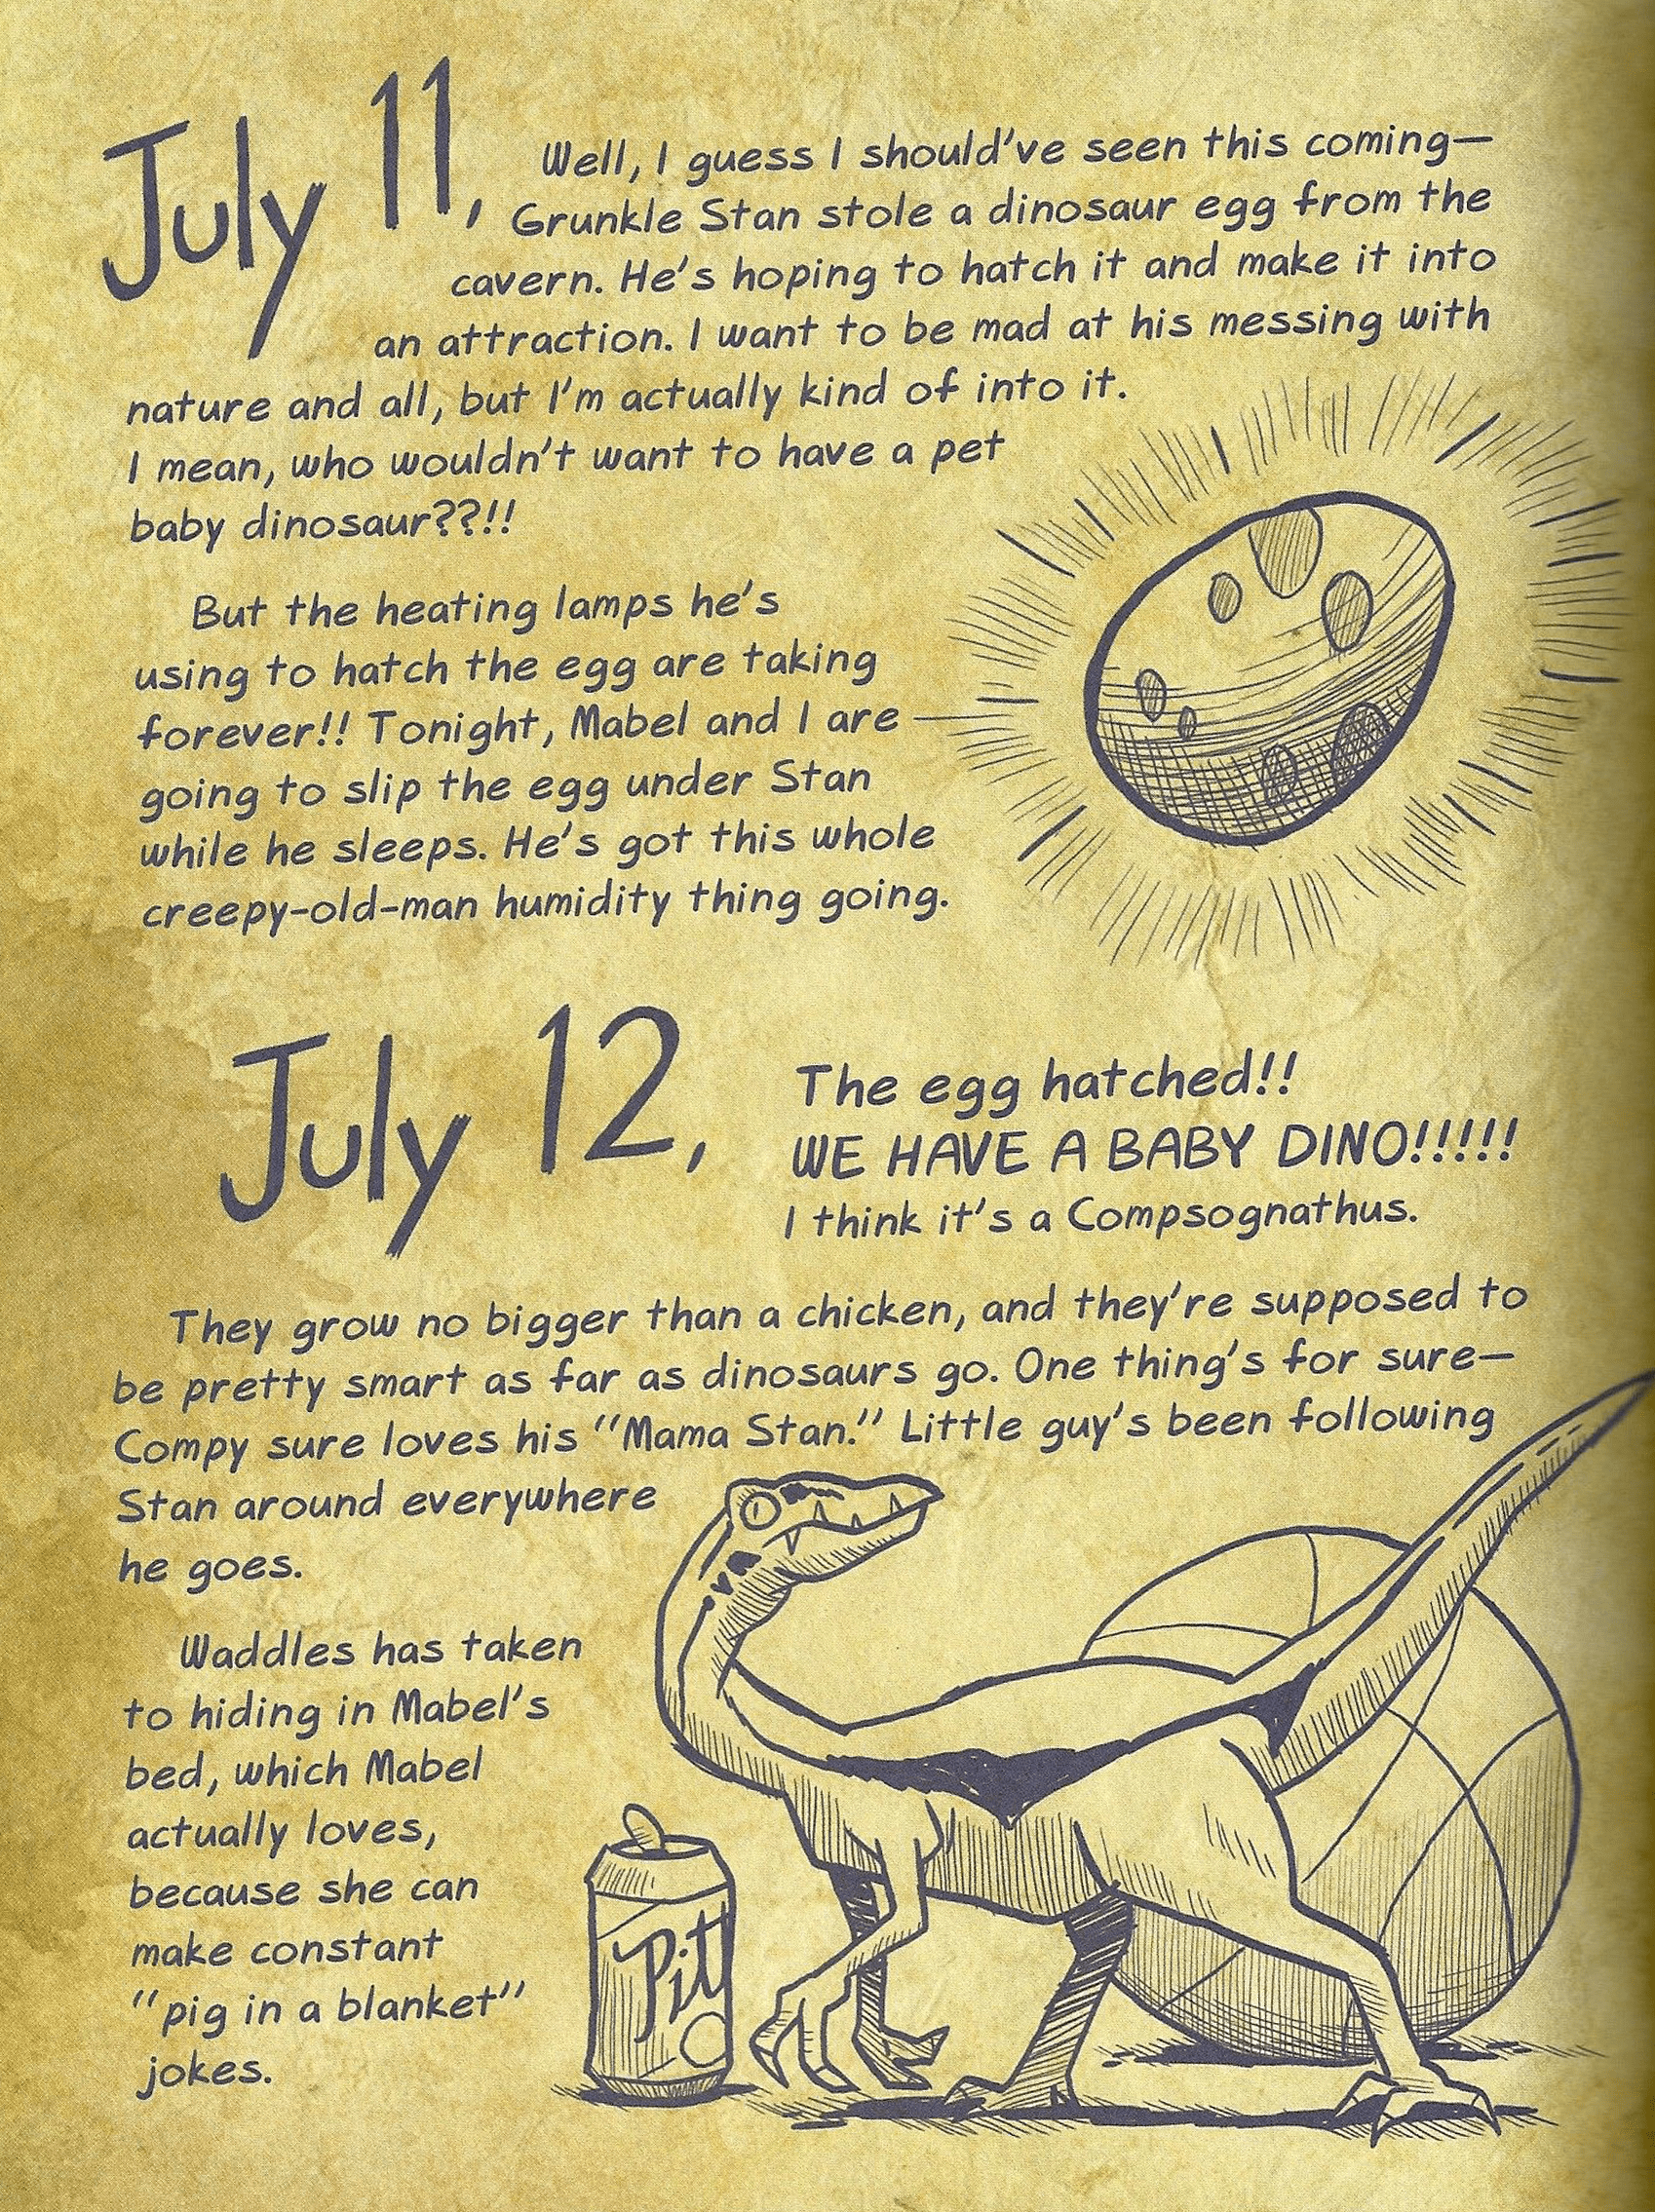 July 11, Well, I guess I should've seen this coming—
Grunkle Stan stole a dinosaur egg from the
cavern. He's hoping to hatch it and make it into
an attraction. I want to be mad at his messing with
nature and all, but I'm actually kind of into it.
I mean, who wouldn't want to have a pet
baby dinosaur??!!
But the heating lamps he's
using to hatch the egg are taking
forever!! Tonight, Mabel and I are
going to slip the egg under Stan
while he sleeps. He's got this whole
creepy-old-man humidity thing going.
July 12, The egg hatched!!
WE HAVE A BABY DINO!!!!!
I think it's a Compsognathus.
They grow no bigger than a chicken, and they're supposed to
be pretty smart as far as dinosaurs go. One thing's for sure—
Compy sure loves his "Mama Stan." Little guy's been following
Stan around everywhere
he goes.
Waddles has taken
to hiding in Mabel's
bed, which Mabel
actually loves,
because she can
make constant
"pig in a blanket"
jokes.
Pitt